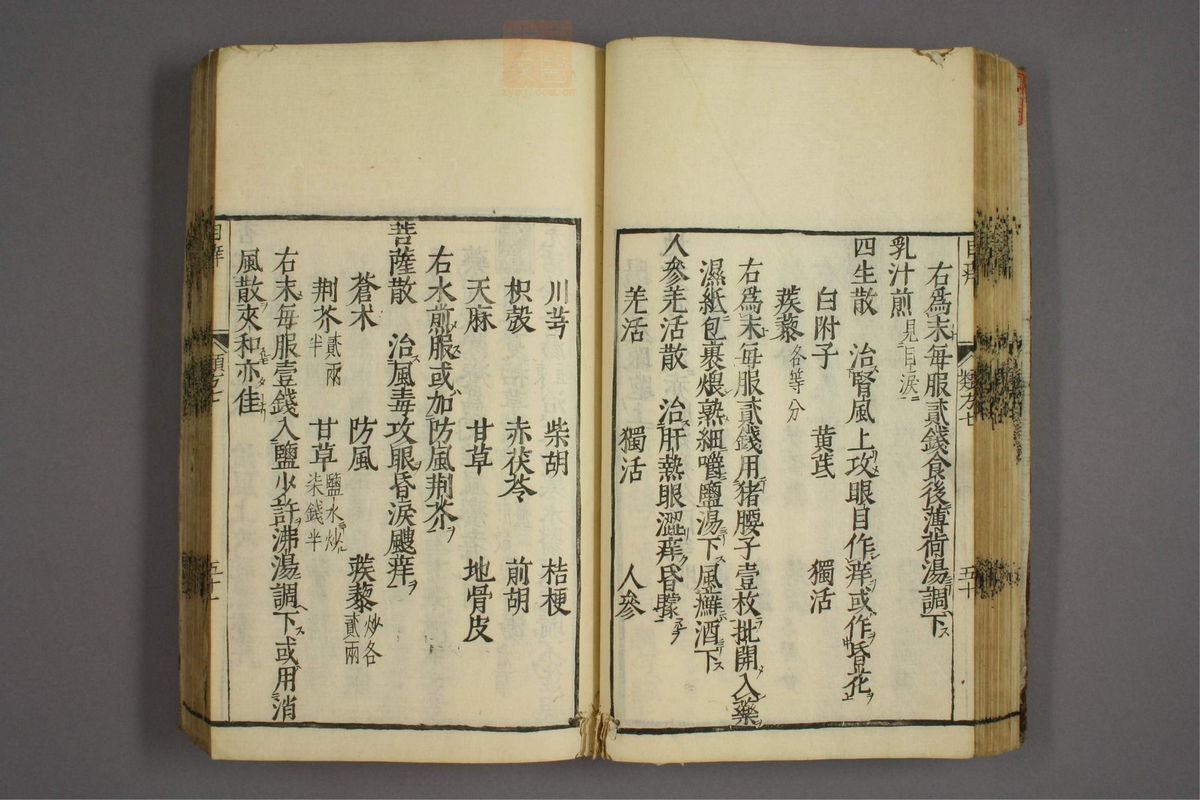 右爲末每服貳錢食後薄荷湯調下
乳汁煎見目淚
四生散　治腎風上攻眼目作痒或作昏花
白附子　黄芪　獨活
蒺藜各等分
右爲末每服貳錢用猪腰子壹枚批開入藥
濕紙包裹煨熟細嚼鹽湯下風癬酒下
人參羌活散　治肝熱眼澀痒昏矇
羌活　獨活　人參
川芎　柴胡　桔梗
枳殼　赤茯苓　前胡
天麻　甘草　地骨皮
右水煎服或加防風荆芥
菩薩散　治風毒攻眼昏淚颼痒
蒼朮　防風　蒺藜炒各貳兩
荆芥貳兩半　甘草鹽水炒柒錢半
右末每服壹錢入鹽少許沸湯調下或用消
風散夾和亦佳
五十
五十一